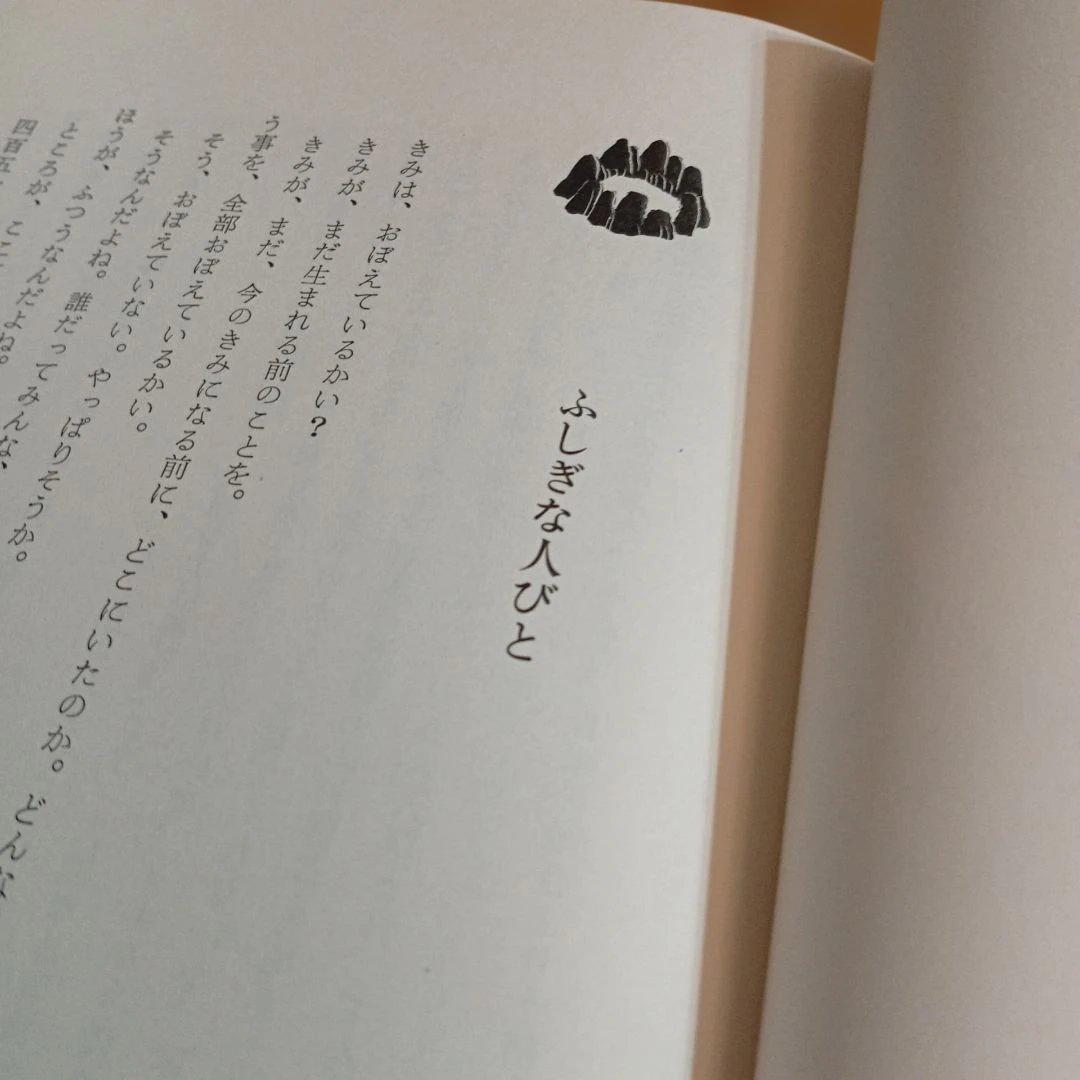 ふしぎな人びと
きみは、おぼえているかい？
きみが、まだ生まれる前のことを。
きみが、まだ、今のきみになる前に、どこにいたのか。どんな
う事を、全部おぼえているかい。
そう、おぼえていない。やっぱりそうか。
そうなんだよね。誰だってみんな、
ほうが、ふつうなんだよね。
ところが、ここ
四百五